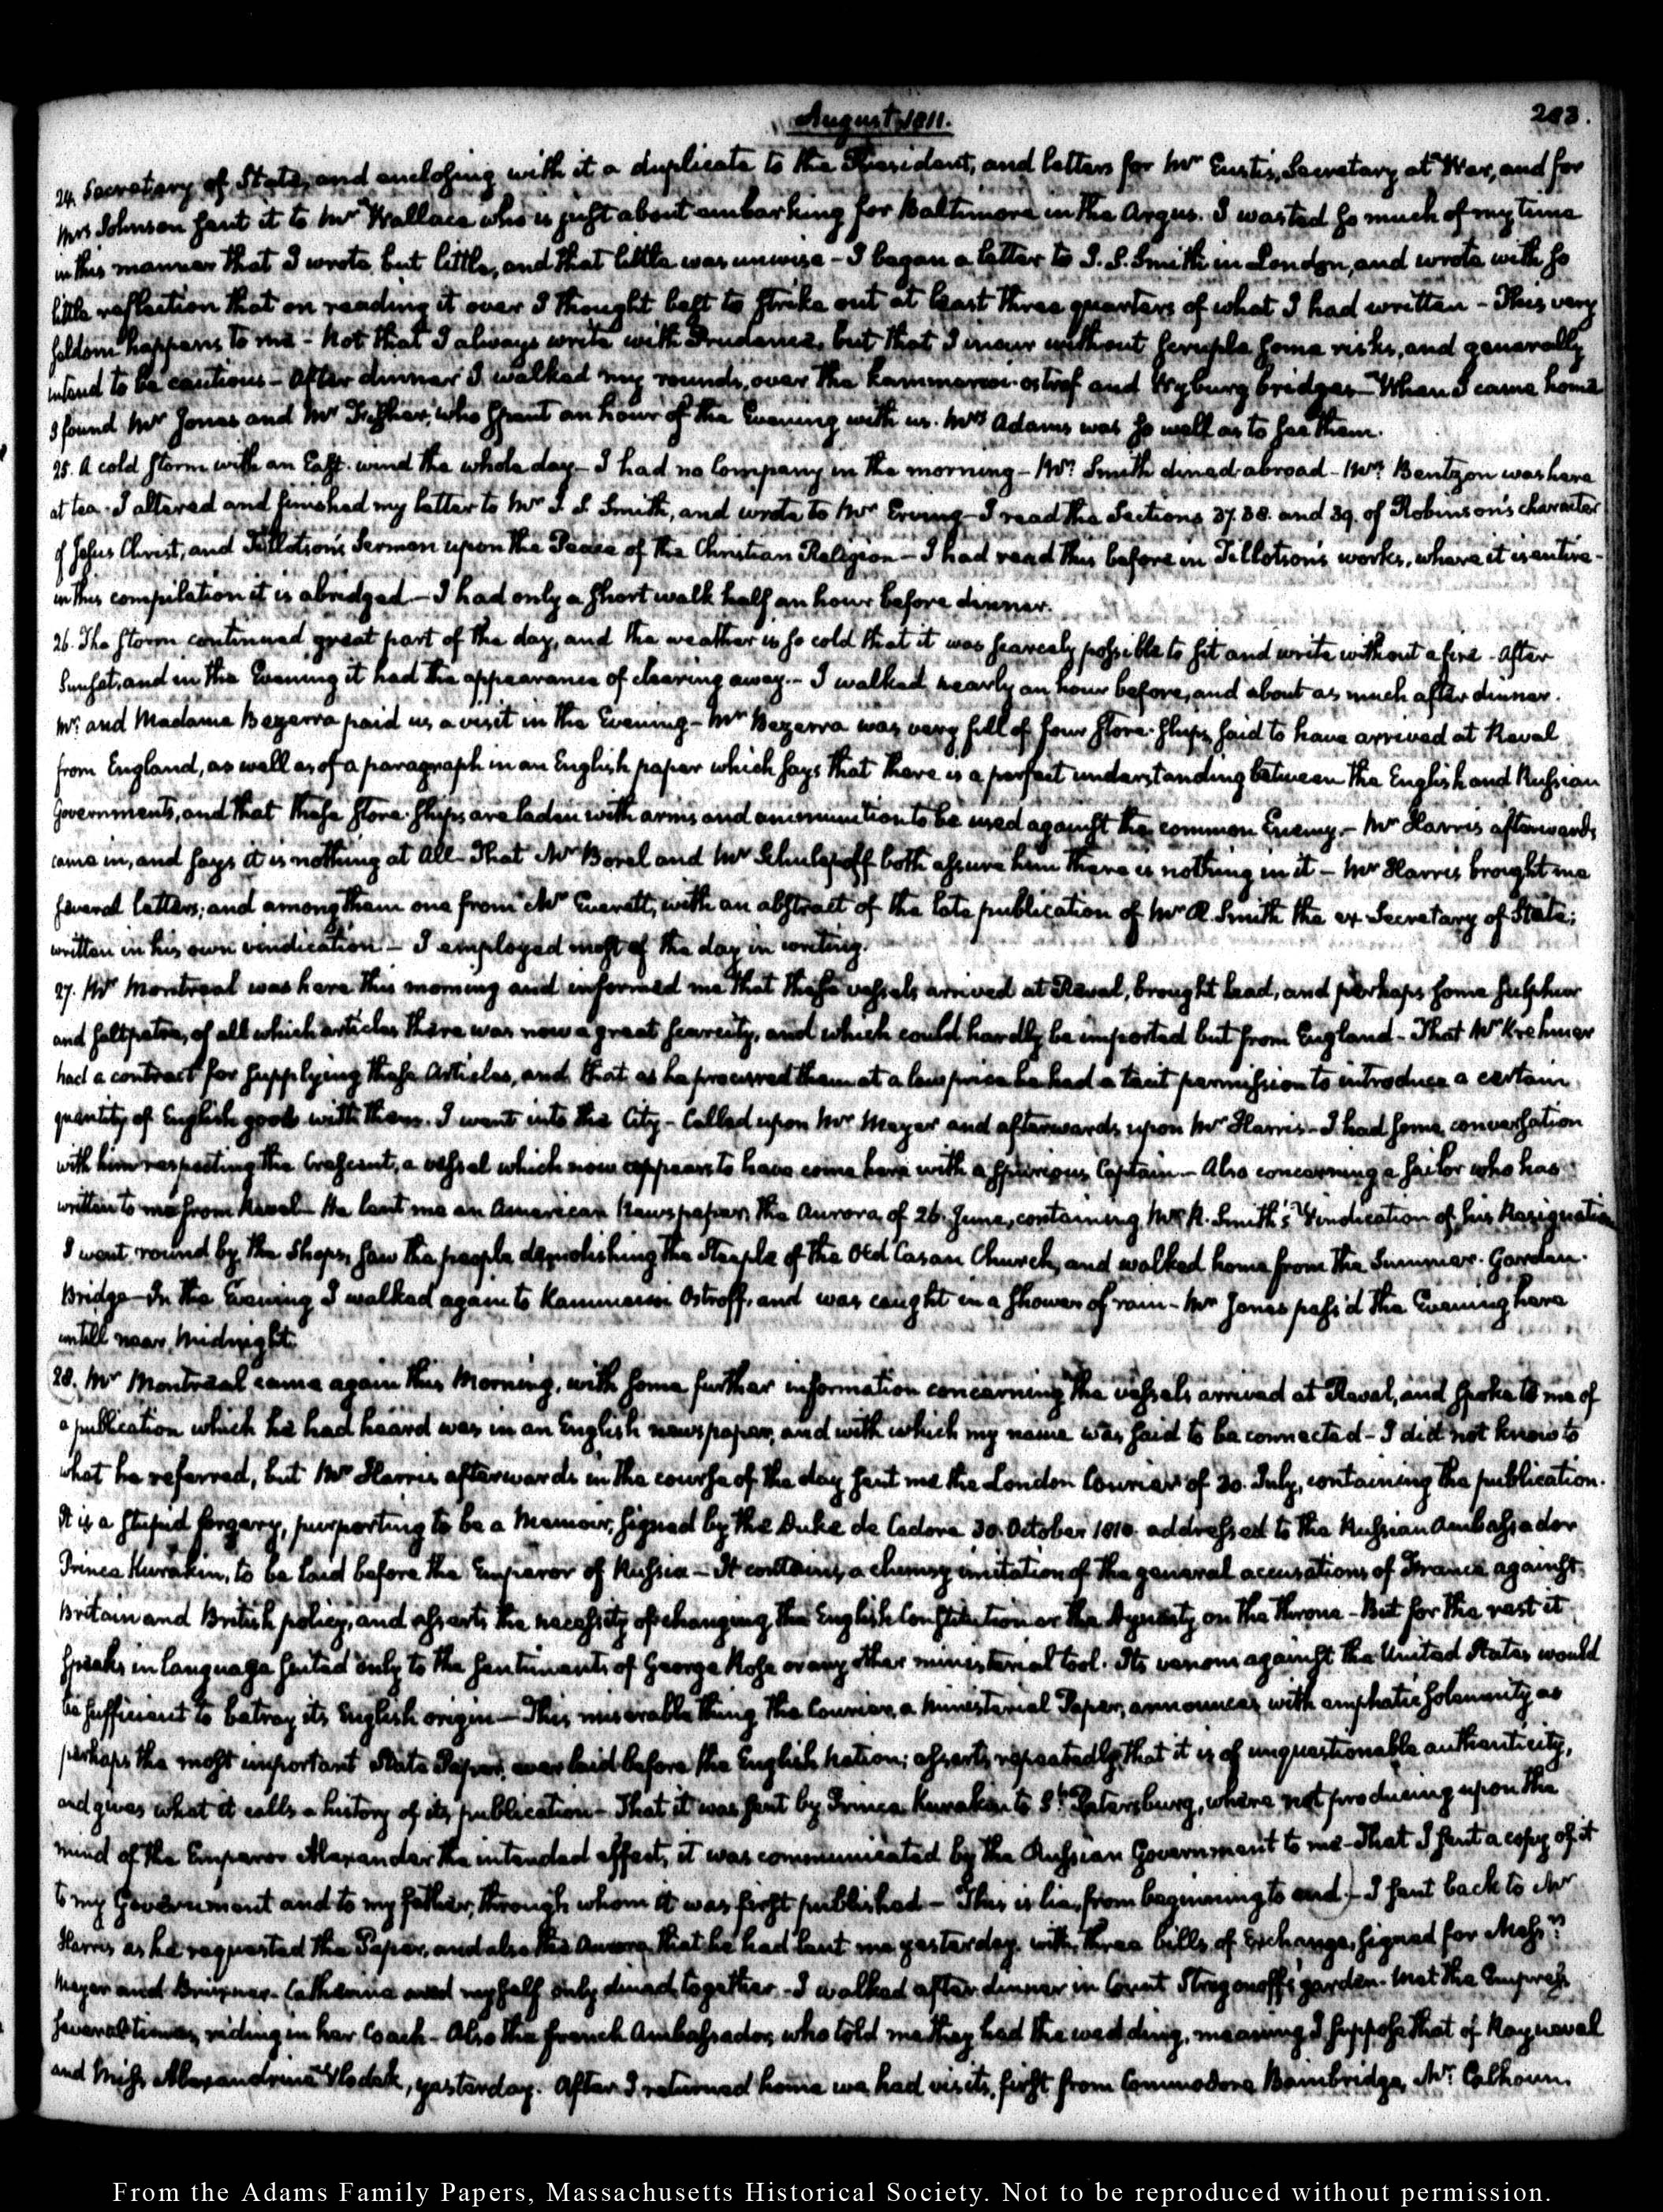 August 1811.
203.
24. Secretary of State, and enclosing with it a duplicate to the President, and letters for Mr Eustis, Secretary at War, and for
Mrs Johnson sent it to Mr Wallace who is just about embarking for Baltimore in the Argus. I wasted so much of my time
in this manner that I wrote but little, and that little was unwise – I began a letter to J. S. Smith in London, and wrote with so
little reflection that on reading it over I thought best to strike out at least three quarters of what I had written – This very
seldom happens to me – Not that I always write with Prudence, but that I incur without scruple some risks, and generally
intend to be cautious – After dinner I walked my rounds, over the Kammenoi-ostrof and Wyburg bridges – When I came home
I found Mr Jones and Mr Fisher, who spent an hour of the Evening with us. Mrs Adams was so well as to see them.
25. A cold storm with an East-wind the whole day – I had no Company in the morning – Mr Smith dined abroad – Mr Bentzon was here
at tea. I altered and finished my letter to Mr J. S. Smith, and wrote to Mr Erving – I read the Sections 37. 38. and 39. of Robinson's character
of Jesus Christ, and Tillotson's Sermon upon the Peace of the Christian Religion – I had read this before in Tillotson's works, where it is entire –
in this compilation it is abridged – I had only a short walk half an hour before dinner.
26. The storm continued great part of the day, and the weather is so cold that it was scarcely possible to sit and write without a fire – After
Sunset, and in the Evening it had the appearance of clearing away. – I walked nearly an hour before, and about as much after dinner.
Mr and Madame Bezerra paid us a visit in the Evening – Mr Bezerra was very full of four store-ships, said to have arrived at Reval
from England, as well as of a paragraph in an English paper which says that there is a perfect understanding between the English and Russian
Governments, and that these store-ships are laden with arms and ammunition to be used against the common Enemy. – Mr Harris afterwards
came in, and says it is nothing at All – That Mr Borel and Mr both assure him there is nothing in it – Mr Harris brought me
several letters; and among them one from Mr Everett, with an abstract of the late publication of Mr R. Smith the ex Secretary of State;
written in his own vindication – I employed most of the day in writing.
27. Mr Montreal was here this morning and informed me that these vessels arrived at Reval, brought lead, and perhaps some sulphur
and saltpetre, of all which articles there was now a great scarcity, and which could hardly be imported but from England – That Mr Krehmer
had a contract for supplying these Articles, and that as he procured them at a low price he had a tacit permission to introduce a certain
quantity of English goods with them. I went into the City – Called upon Mr Meyer and afterwards upon Mr Harris – I had some conversation
with him respecting the Crescent, a vessel which now appears to have come here with a spurious Captain – Also concerning a sailor who has
written to me from Reval – He lent me an American Newspaper, the Aurora of 26. June, containing Mr R. Smith's Vindication of his Resignation
I went round by the Shops, saw the people demolishing the Steeple of the Old Casan Church, and walked home from the Summer-Garden-
Bridge – In the Evening I walked again to Kammenoi Ostroff, and was caught in a shower of rain – Mr Jones pass'd the Evening here
untill near Midnight.
28. Mr Montreal came again this Morning, with some further information concerning the vessels arrived at Reval, and spoke to me of
a publication which he had heard was in an English newspaper, and with which my name was said to be connected – I did not know to
what he referred, but Mr Harris afterwards in the course of the day sent me the London Courier of 30. July, containing the publication.
It is a stupid forgery, purporting to be a Memoir, signed by the Duke de Cadore 30. October 1810. addressed to the Russian Ambassador
Prince Kurakin, to be laid before the Emperor of Russia – It contains, a clumsy imitation of the general accusations of France against
Britain and British policy, and asserts the necessity of changing the English Constitution or the Dynasty on the Throne – But for the rest it
speaks in language suited only to the sentiments of George Rose or any other ministerial tool. Its venom against the United States would
be sufficient to betray its English origin – This miserable thing the Courier, a Ministerial Paper, announces with emphatic solemnity as
perhaps the most important State Paper, ever laid before the English Nation; asserts repeatedly that it is of unquestionable authenticity,
and gives what it calls a history of its publication – That it was sent by Prince Kurakin to St Petersburg, where not producing upon the
mind of the Emperor Alexander the intended effect, it was communicated by the Russian Government to me – That I sent a copy of it
to my Government and to my father, through whom it was first published – This is lie, from beginning to end. – I sent back to Mr
Harris as he requested the Paper, and also the Aurora that he had lent me yesterday, with three bills of Exchange, signed for Messrs
Meyer and Bruxner. Catherine and myself only dined together – I walked after dinner in Count Strogonoff's garden. Met the Empress
several times, riding in her Coach – Also the french Ambassador, who told me they had the wedding, meaning I suppose that of Rayneval
and Miss Alexandrine Wlodek, yesterday. After I returned home we had visits, first from Commodore Bainbridge, Mr Calhoun
From the Adams Family Papers, Massachusetts Historical Society. Not to be reproduced without permission.